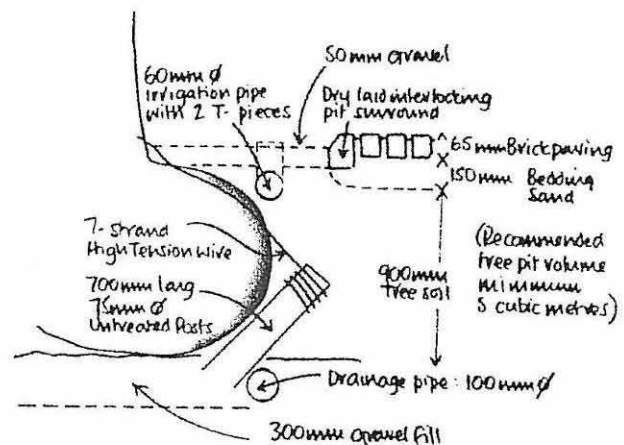 50mm gravel
60mm Ø
Irrigation pipe
with 2 T-pieces
Dry laid interlocking
pit surround
65mm Brick paving
150mm Bedding
Sand
7-strand
High Tension wire
700mm long
75mm Ø
Untreated Posts
900mm
tree soil
(Recommended
tree pit volume
minimum
5 cubic metres)
Drainage pipe: 100mm Ø
300mm gravel fill